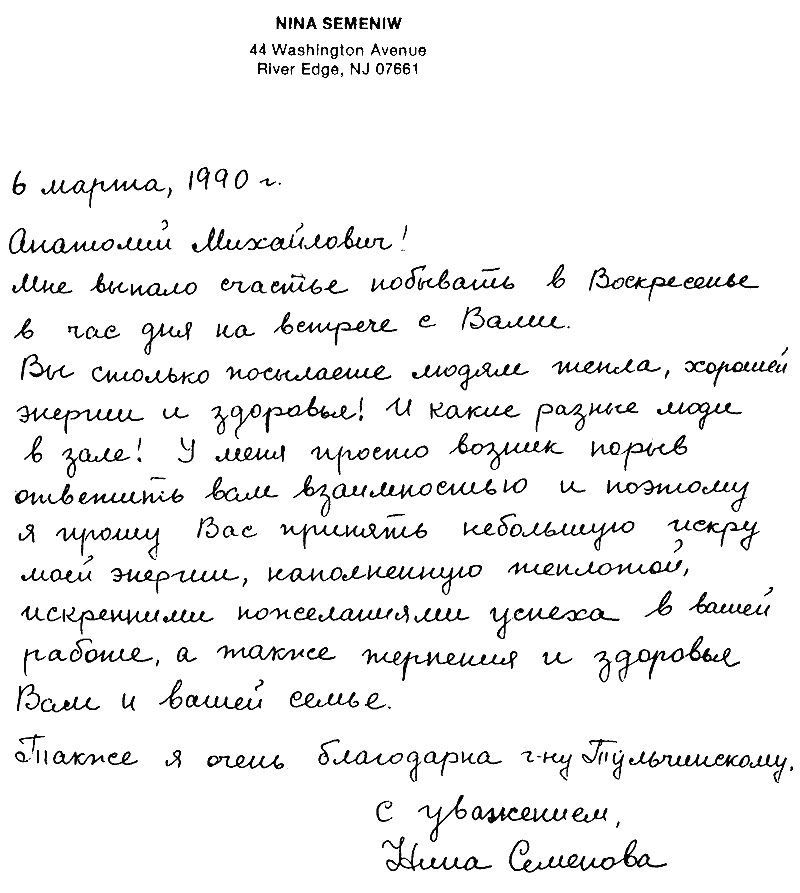 NINA SEMENIW
44 Washington Avenue
River Edge, NJ 07661
6 марта, 1990 г.
Анатолий Михайлович!
Мне выпало счастье побывать в Воскресенье
в час дня на встрече с Вами.
Вы столько посылаете людям тепла, хорошей
энергии и здоровья! И какие разные люди
в зале! У меня просто возник порыв
ответить вам взаимностью и поэтому
я прошу Вас принять небольшую искру
моей энергии, наполненную теплотой,
искренними пожеланиями успеха в вашей
работе, а также терпения и здоровья
Вам и вашей семье.
Также я очень благодарна г-ну Тульчинскому.
С уважением,
Нина Семенова